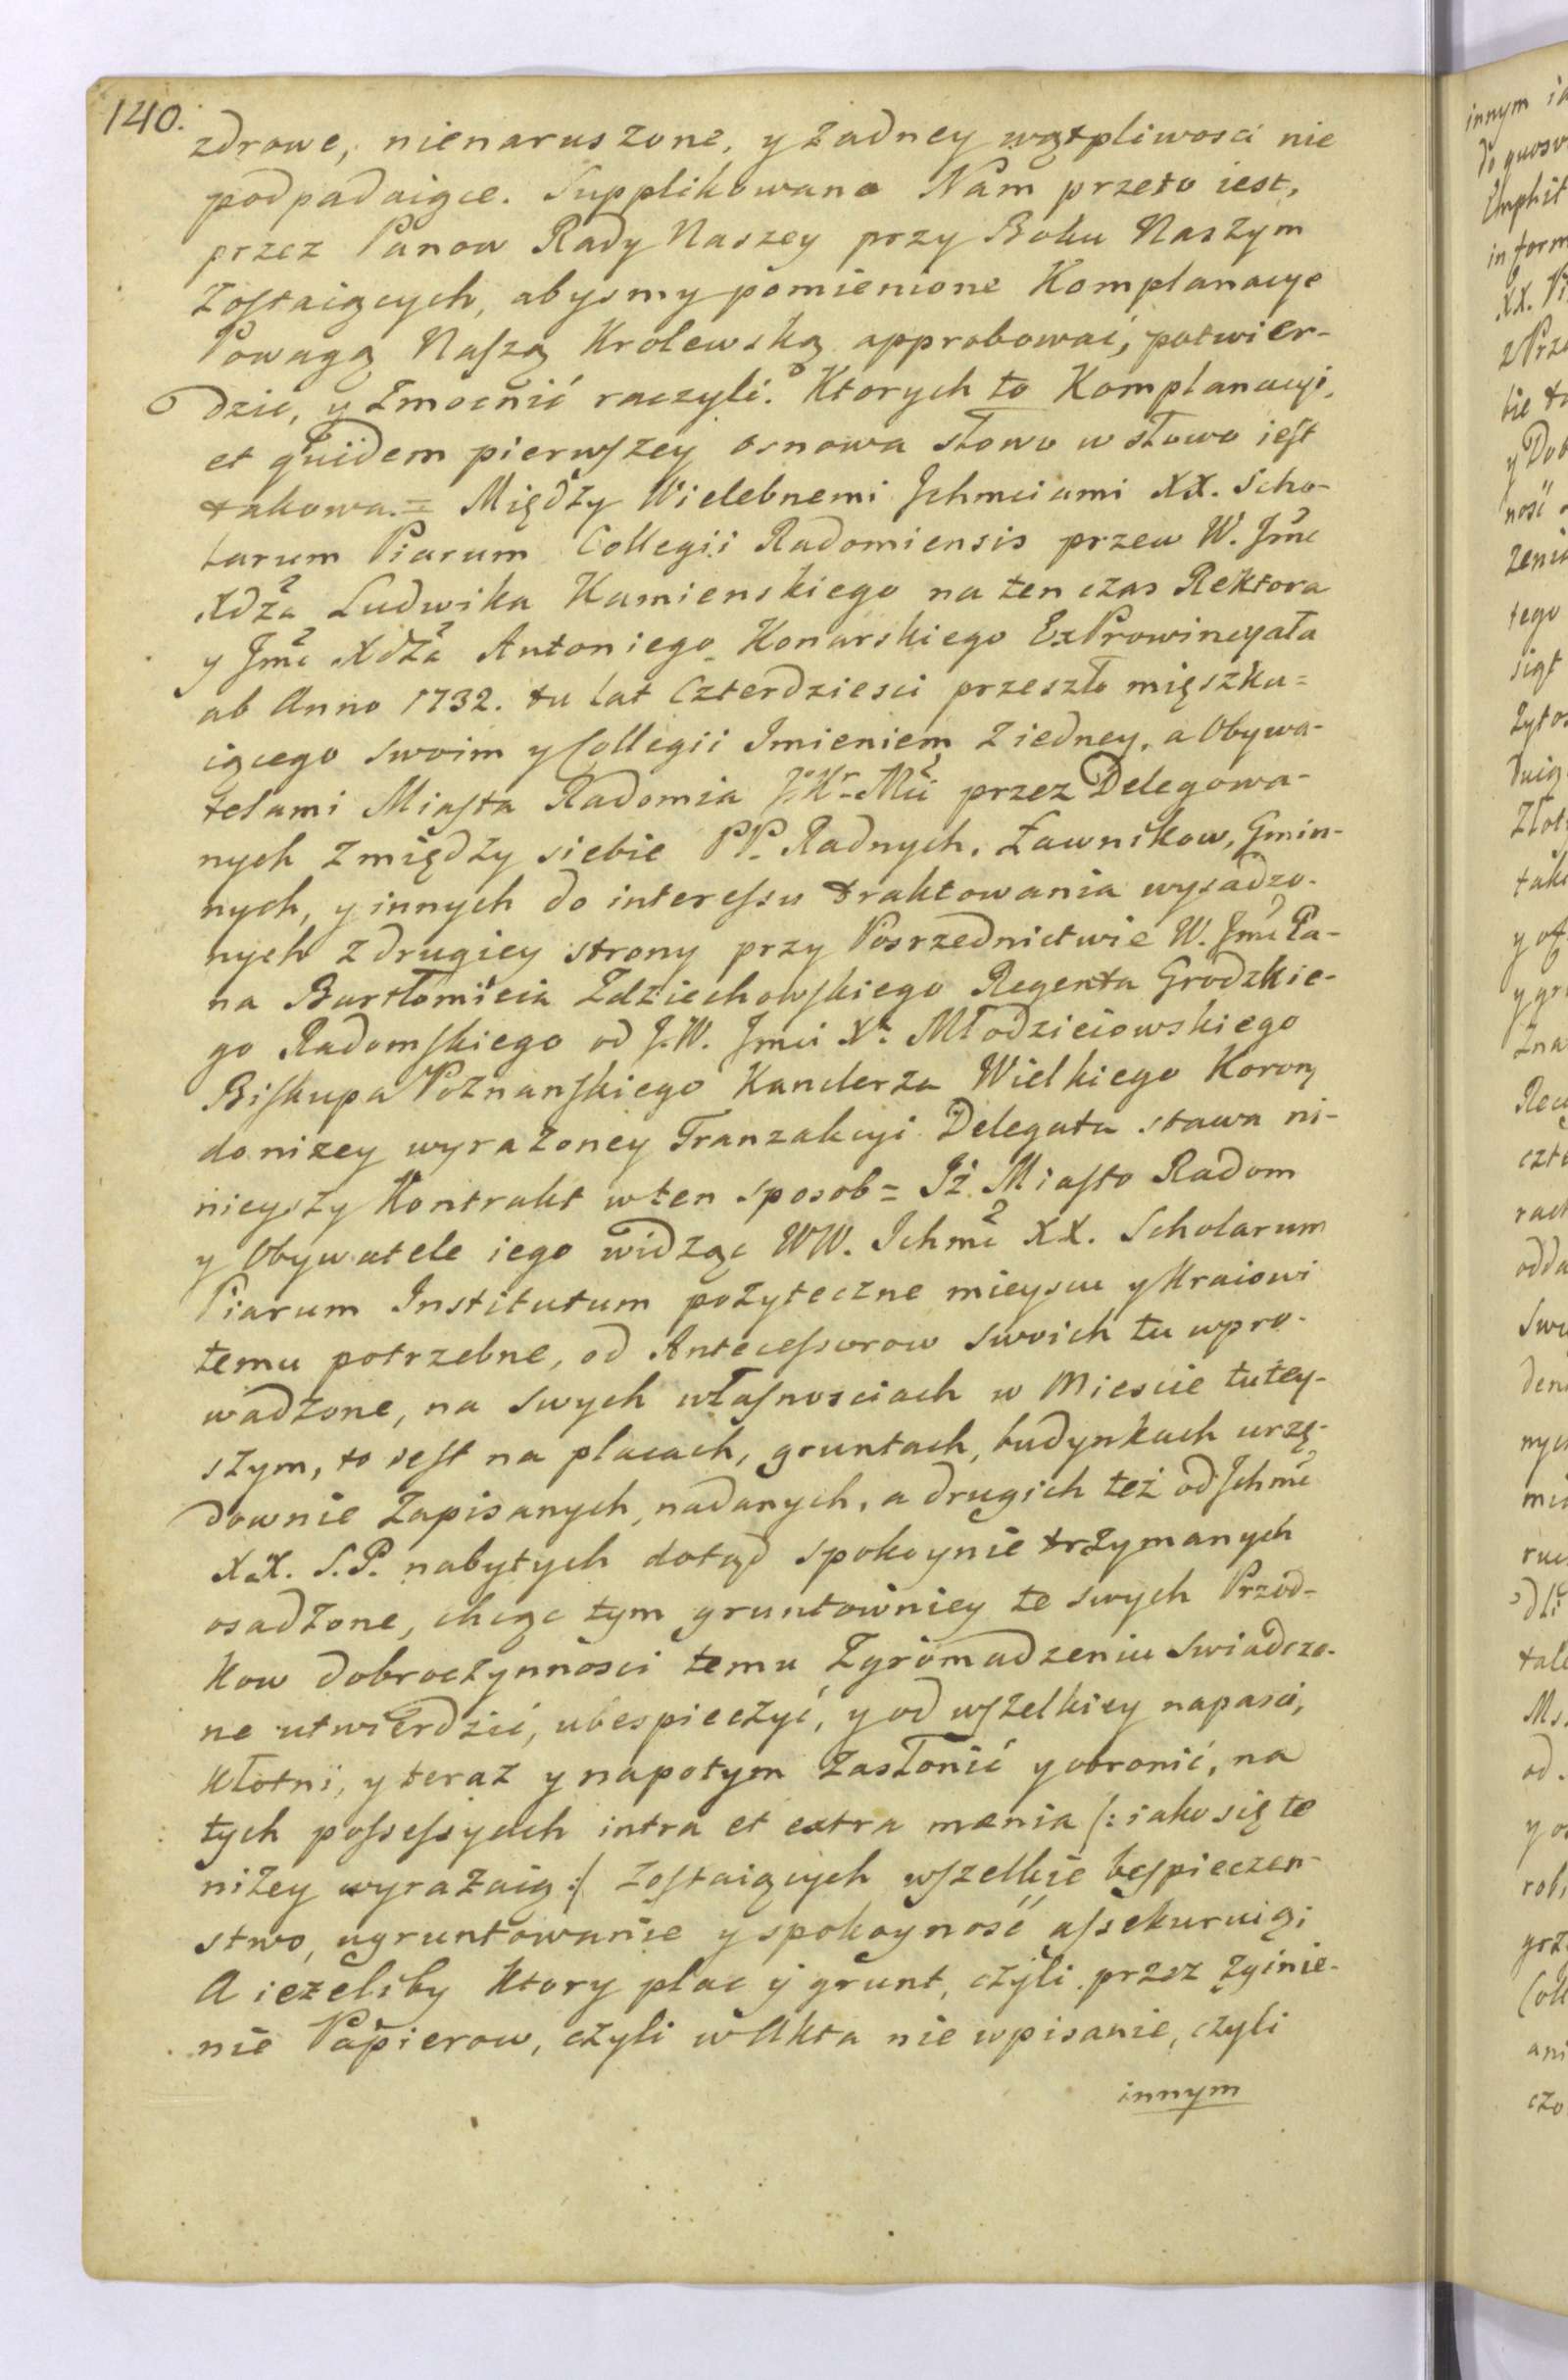 140.
zdrowe, nienaruszone, y żadney wątpliwosci nie
podpadaiące. Supplikowano Nam przeto iest,
przez Panow Rady Naszey przy Boku Naszym
Zostaiących, abysmy pomienione Komplanacye
Powagą Naszą Krolewską approbować, potwier-
dzic, y Zmocnić raczyli. Ktorych to Komplanacyi,
et quidem pierwszey osnowa słowo w słowo iest
takowa.= Między Wielebnemi Ichmciami XX. Scho-
larum Piarum Collegii Radomiensis przew W. Jmc
Xdza Ludwika Kamienskiego na ten czas Rektora
y Jmc Xdza Antoniego Konarskiego ExProwincyała
ab Anno 1732. tu lat Czterdziesci przeszło mięszka=
iącego swoim y Collegii Imieniem z iedney, a Obywa-
telami Miasta Radomia J. Kr. Mci przez Delegowa-
nych z między siebie PP. Radnych, Ławnikow, Gmin-
nych, y innych do interessu traktowania wysadzo-
nych z drugiey strony przy Posrzednictwie W. Jmc Pa-
na Bartłomieia Zdziechowskiego Regenta Grodzkie-
go Radomskiego od J.W. Jmci Xa. Młodzieiowskiego
Biskupa Poznanskiego Kanclerza Wielkiego Korony
do niżey wyrażoney Tranzakcyi Delegata stawa ni-
nieyszy Kontrakt w ten sposob= Iż Miasto Radom
y Obywatele iego widząc WW. Ichmc XX. Scholarum
Piarum Institutum pożyteczne mieyscu y Kraiowi
temu potrzebne, od Antecessorow swoich tu wpro-
wadzone, na swych własnosciach w Miescie tutey-
szym, to iest na placach, gruntach, budynkach urzę-
downie Zapisanych, nadanych, a drugich też od Ichmc
XX. S.P. nabytych dotąd spokoynie trzymanych
osadzone, chcąc tym gruntowniey te swych Przod-
kow dobroczynnosci temu Zgromadzeniu swiadczo-
ne utwierdzić, ubespieczyć, y od wszelkiey napasci,
Kłotni, y teraz y napotym Zasłonić y obronić, na
tych possessyach intra et extra mænia /: iako się te
niżey wyrażaią :/ Zostaiących wszelkie bespieczen-
stwo, ugruntowanie y spokoyność assekuruią;
A ieżeliby Ktory plac y grunt, czyli przez Zginie-
nie Papierow, czyli w Akta nie wpisanie, czyli
innym